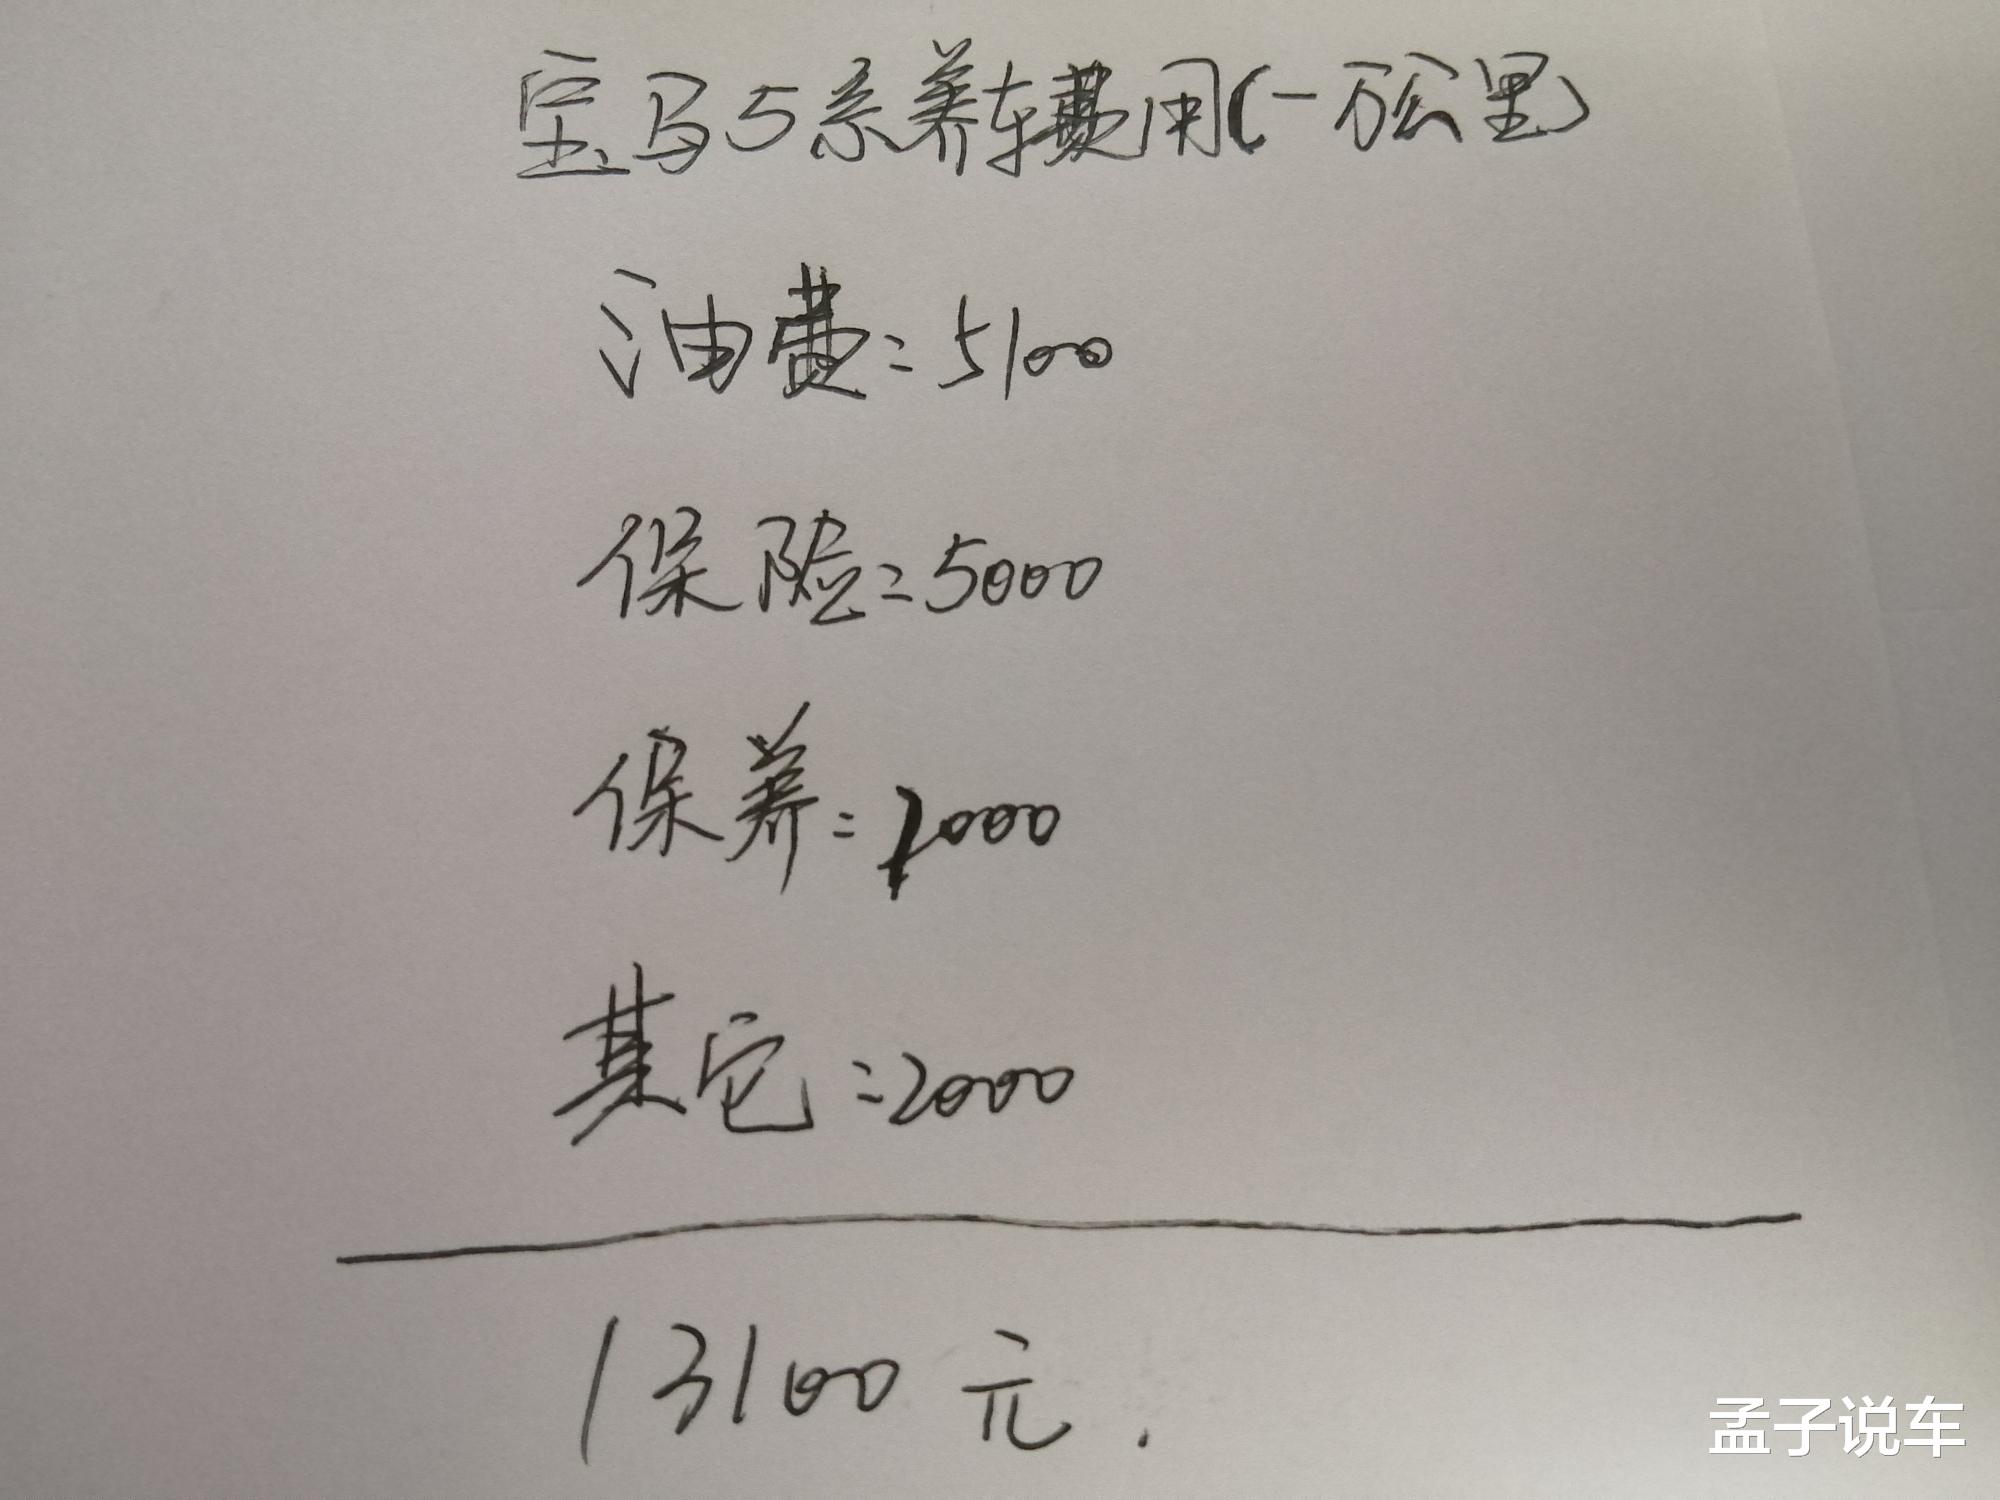 宝马5系养车费用(一万公里)
油费=5100
保险=5000
保养=1000
其它=2000
13100元.
孟子说车